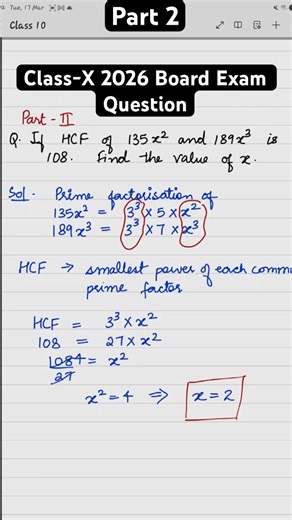 Tue, 17 Mar
Part 2
Class 10
Class-X 2026 Board Exam
Question
Part - II
Q. If HCF of 135x² and 189x³ is
108. Find the value of x.
Sol - Prime factorisation of
135x² = 3³ × 5 × x²
189x³ = 3³ × 7 × x³
HCF → smallest power of each comm
prime factor
HCF = 3³ × x²
108 = 27 × x²
108 4 = x²
27
x² = 4 ⇒ x = 2